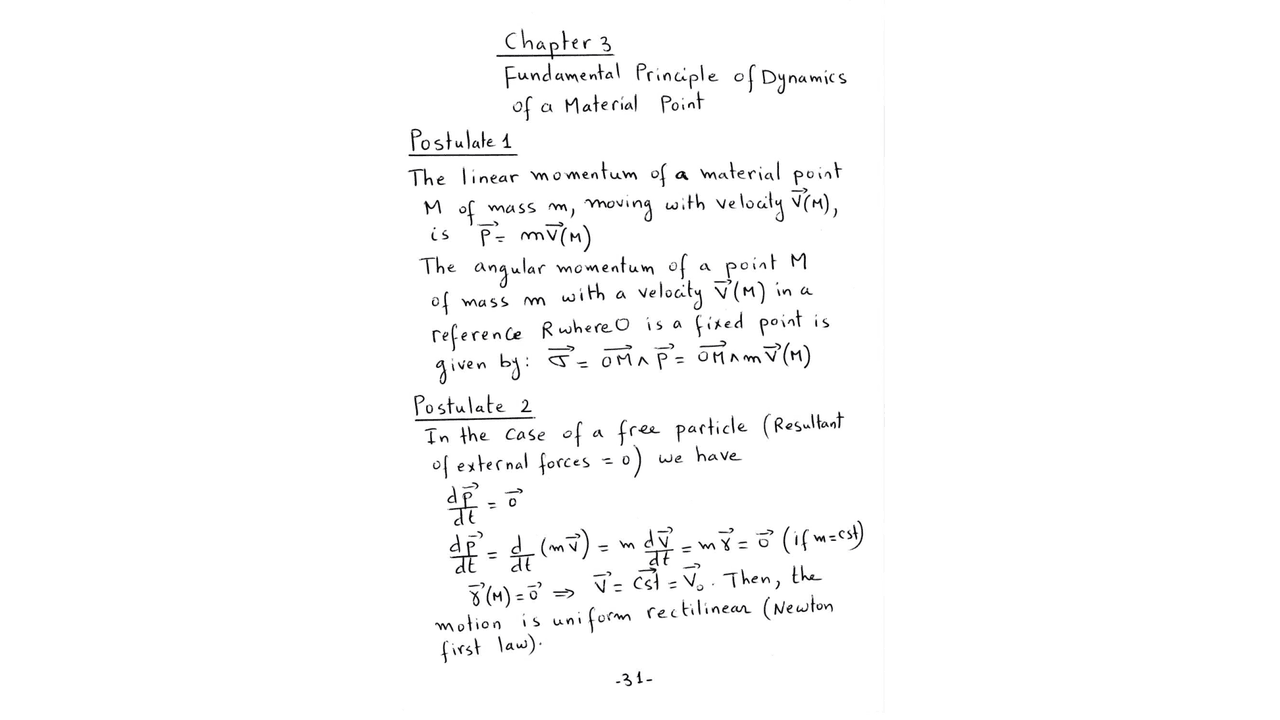 Chapter 3
Fundamental Principle of Dynamics
of a Material Point
Postulate 1
The linear momentum of a material point
M of mass m, moving with velocity V⃗(M),
is P⃗ = mV⃗(M)
The angular momentum of a point M
of mass m with a velocity V⃗(M) in a
reference R where O is a fixed point is
given by: σ⃗ = OM⃗ ∧ P⃗ = OM⃗ ∧ mV⃗(M)
Postulate 2
In the case of a free particle (Resultant
of external forces = 0) we have
dP⃗/dt = 0⃗
dP⃗/dt = d/dt (mV⃗) = m dV⃗/dt = mγ⃗ = 0⃗ (if m=cst)
γ⃗(M) = 0⃗ ⇒ V⃗ = cst⃗ = V⃗₀. Then, the
motion is uniform rectilinear (Newton
first law).
-31-